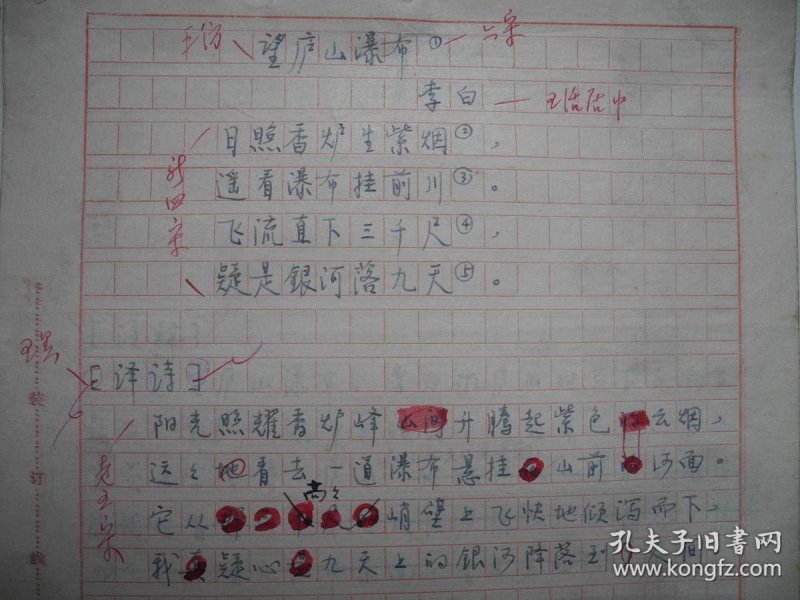 望庐山瀑布①
李白
日照香炉生紫烟②，
遥看瀑布挂前川③。
飞流直下三千尺④，
疑是銀河落九天⑤。
新四宋
【译诗】
阳光照耀香炉峰升腾起紫色云烟，
远々地看去一道瀑布悬挂山前河面。
高々
它从峭壁上飞快地倾泻而下，
我疑心九天上的銀河降落到人间
老五宋
装
订
线
孔夫子旧书网
kongfz.com